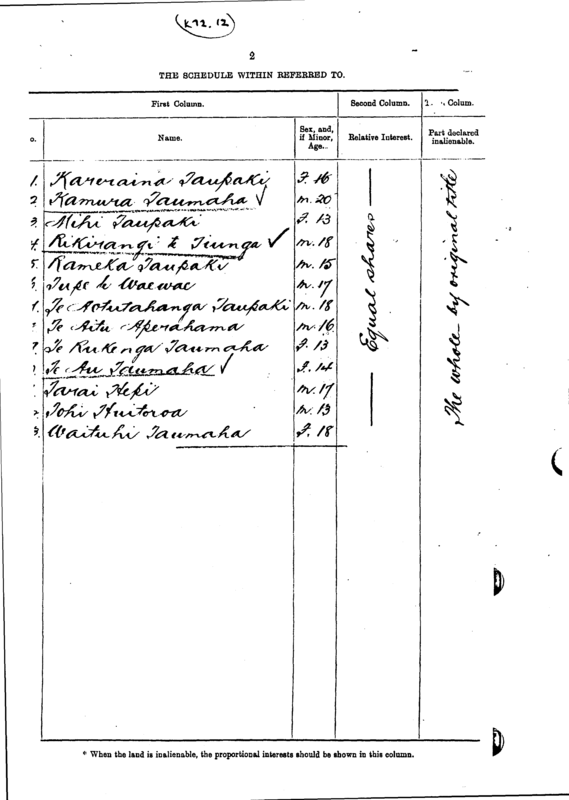 K72.12
2
THE SCHEDULE WITHIN REFERRED TO.
First Column. Second Column. Colum.
o. Name. Sex, and, if Minor, Age.. Relative Interest. Part declared inalienable.
1. Kareraina Taupaki F. 16
2 Kamura Taumaha ✓ m. 20
3. Mihi Taupaki F. 13
4. Rikirangi te Tiunga ✓ m. 18
5. Rameka Taupaki m. 15
Tupe te Waewae m. 17
Te Aotutahanga Taupaki m. 18
Te Aitu Aperahama m. 16
Te Rukenga Taumaha F. 13
Te Au Taumaha ✓ F. 14
Tarai Hepi m. 17
Tohi Huitoroa m. 13
3. Waituhi Taumaha F. 18
Equal shares
The whole by original title
* When the land is inalienable, the proportional interests should be shown in this column.